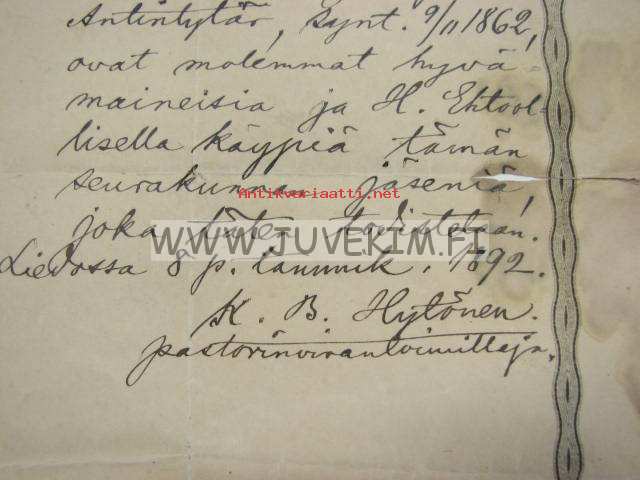 Antintytär, synt. 9/11 1862,
ovat molemmat hyvä-
maineisia ja H. Ehtool-
lisella käypiä tämän
seurakunnan jäseniä,
Antikvariaatti.net
joka täten todistetaan.
WWW.JUVEKIM.FI
Liedossa 8 p. tammik. 1892.
K. B. Hytönen.
pastorinvirantoimittaja.